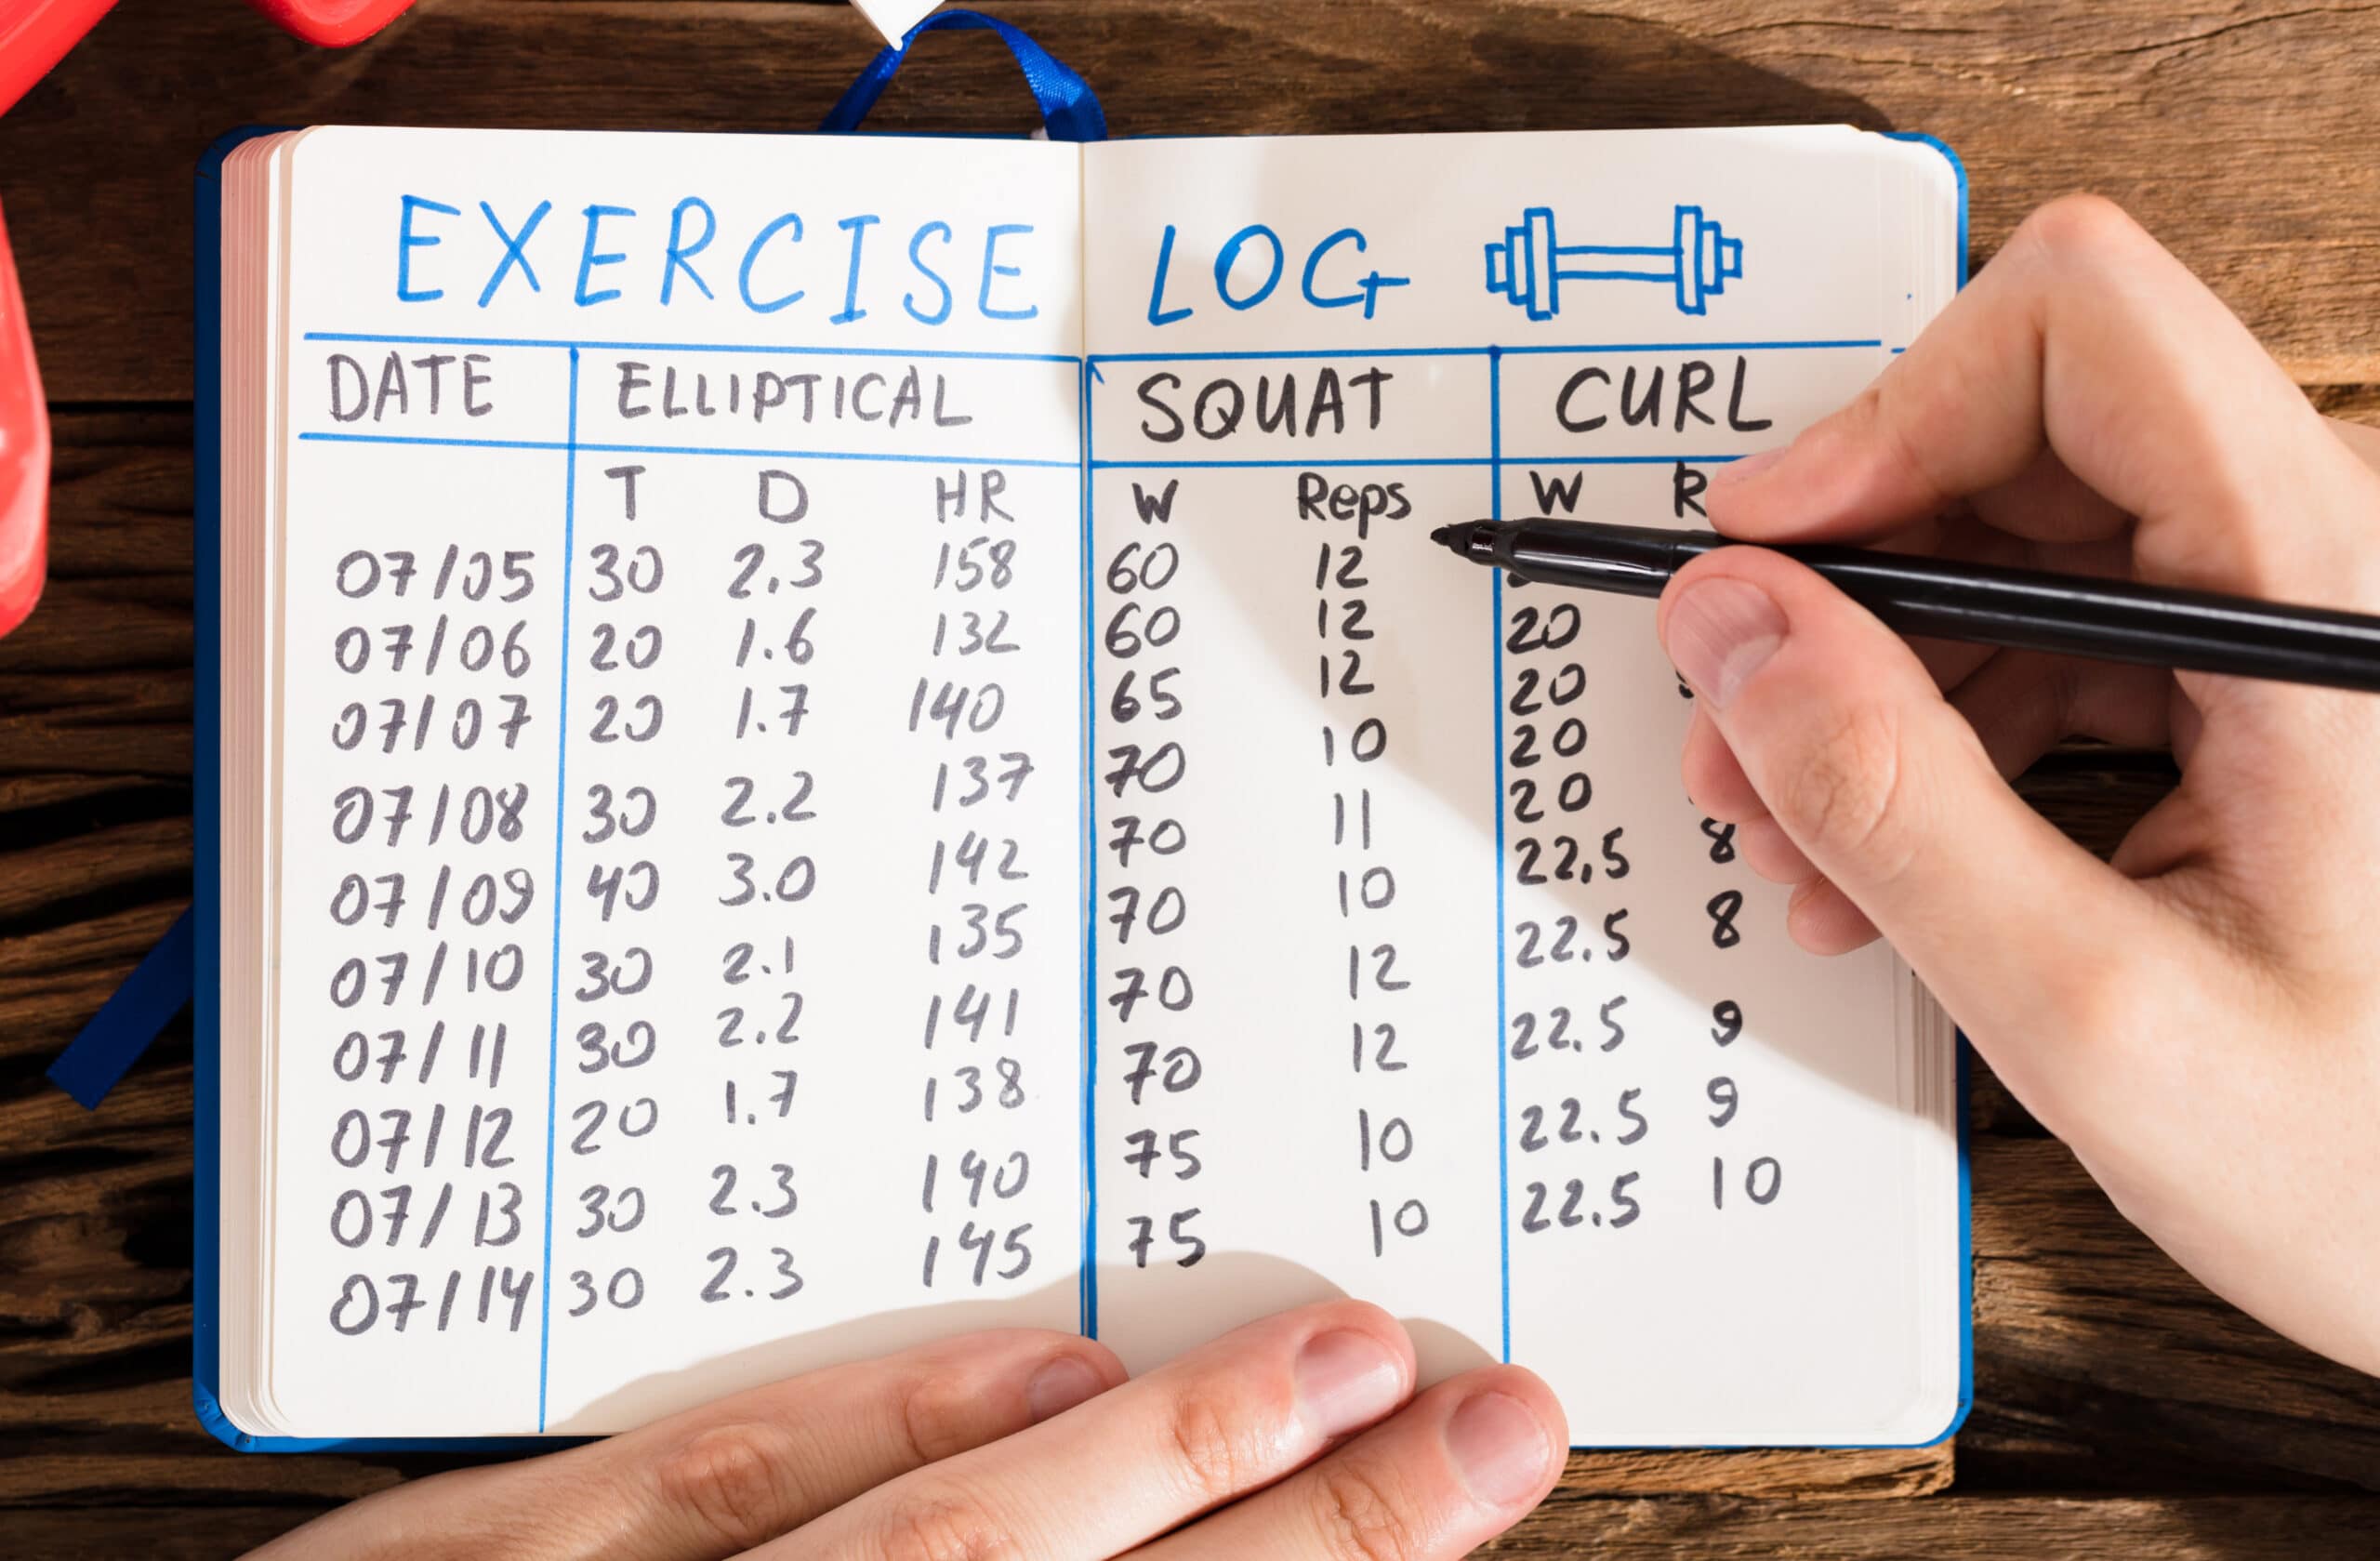 EXERCISE LOG
DATE ELLIPTICAL SQUAT CURL
T D HR W Reps W R
07/05 30 2.3 158 60 12
07/06 20 1.6 132 60 12 20
07/07 20 1.7 140 65 12 20
07/08 30 2.2 137 70 10 20
07/09 40 3.0 142 70 11 20
07/10 30 2.1 135 70 10 22.5 8
07/11 30 2.2 141 70 12 22.5 8
07/12 20 1.7 138 70 12 22.5 9
07/13 30 2.3 140 75 10 22.5 9
07/14 30 2.3 145 75 10 22.5 10